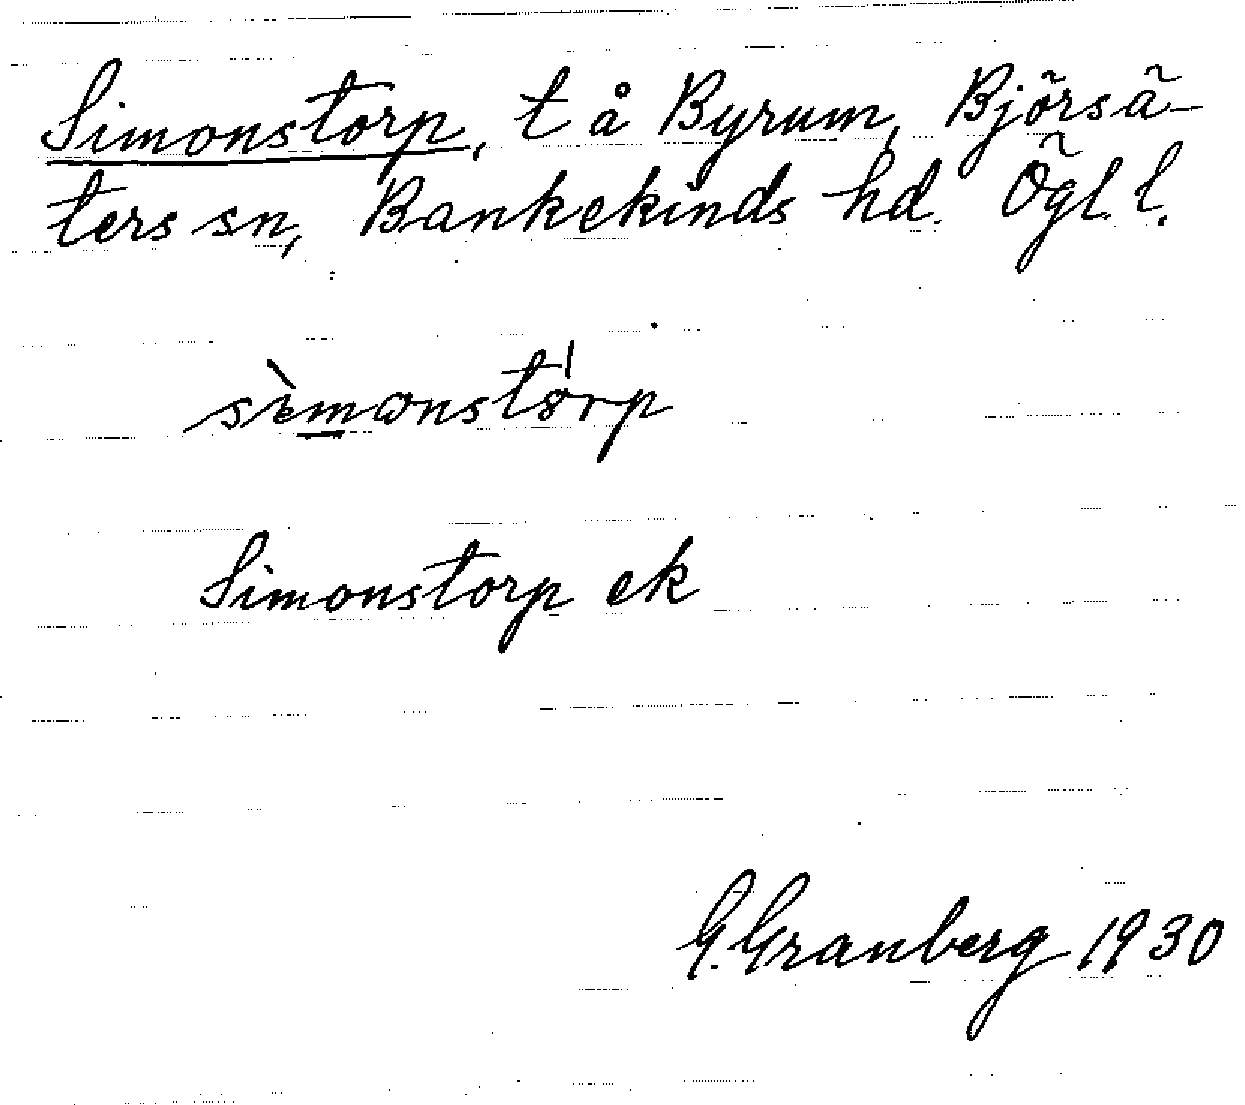 Simonstorp, t å Byrum, Björsä-
ters sn, Bankekinds hd. Ögl. l.
sèmωnstørp
Simonstorp ek
G. Granberg 1930